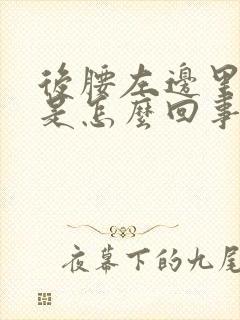 後腰左邊里
是怎麼回事
夜幕下的九尾